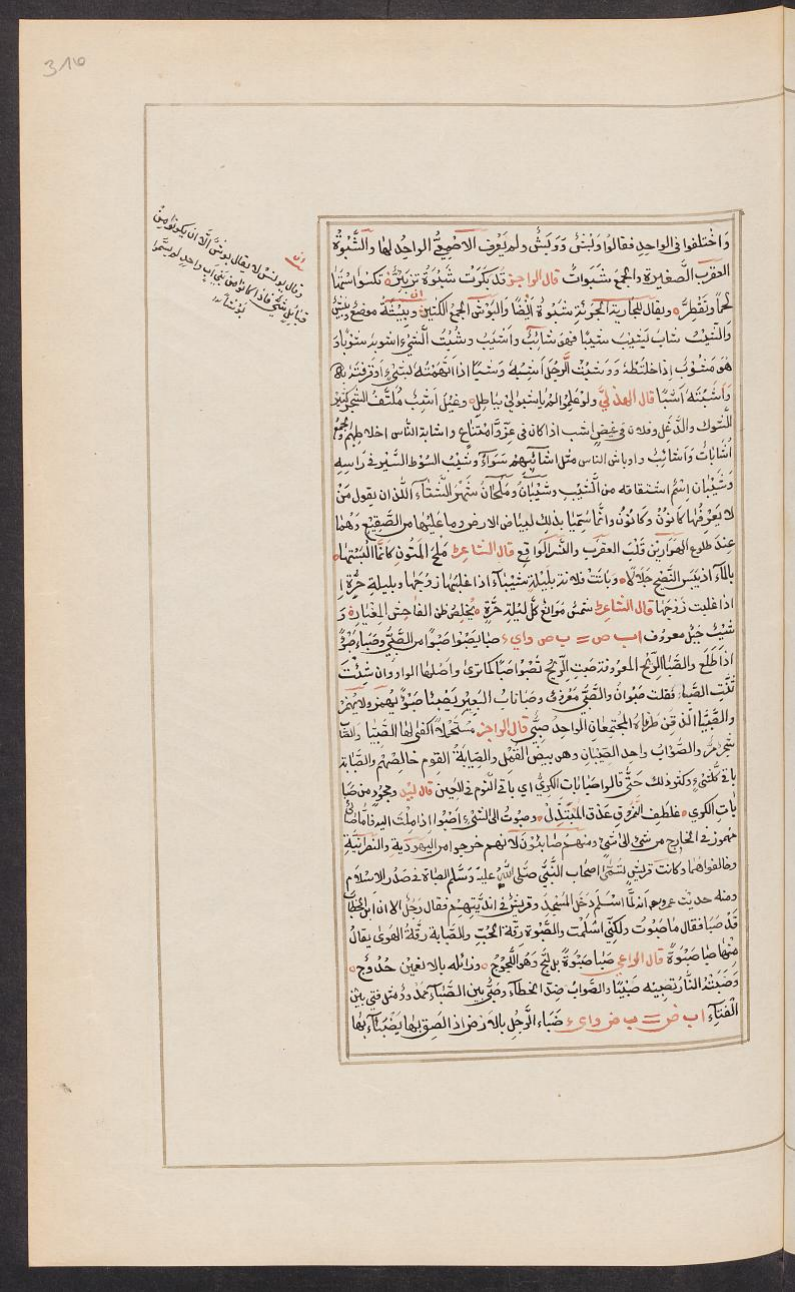 316
وقال يونس لا يقال بوش الّا ان يكونوا من
قبايل شتّى فاذا كانوا من بني اب واحد لم يسمّوا
بوشا
وَاختلفوا في الواحدِ فقالوا وَبْشٌ وَوَبَشٌ ولم يَعْرِف الاصْمعِيُّ الواحِدُ لها والشَّبْوَةُ
العقرَب الصَّغيرة والجمع شَبَوَاتٌ قال الراجز قَدْ بَكَرَت شَبْوَةُ تَزْبَئِرُّ تكسُوا اسْتَهَا
لحمًا وتَقْطِرُّ ويقال للجارية شَبْوَةُ ايْضًا والبَوْش الجمعُ الكثير وبِيْشَةُ موضع
وَالشَّيْبُ شابَ يَشِيبُ شيبًا فهو شائِبٌ واَشيَبُ وشُبْتُ الَّشيْءَ اشوبه شوْبًا وَ
هوَ مَشُوْبٌ اِذا خلطتهُ وَوَشَيْتُ الَّرجلَ اذا اتَّهَمْتُه بشَيْءٍ
قال الهذليّ ولوْ عَلِمُوا لم يَاْشِبُوني بباطلٍ وغَيْل اَشِبٌ مُلْتَفُّ الشّجر كثير
الشوك والدَّغل وفلان في عِيْصٍ اَشب اذا كان في عِزّ وَامْتناعٍ واُشابة النَّاس اخلاطهُم والجمع
اُشابَاتٌ وَاَشائبُ واوباش الناس مثل اشائبهم سَوَاءٌ وشَيْبُ السَّوْط السَّيْر في رَاسِهِ
وَشَيْبَان اِسْمٌ اشتقاقه من الَشيْبِ وشَيْبَان ومِلْحَان شَهْرَا الشتَاءِ اللذان يقول مَنْ
لا يَعْرِفُهَا كانونُ وَكانونُ وانّما سُمّيا بذلك لبياض الارض وما عَليْها من الصّقيع وَهُما
عِندَ طلوع الهَرَّارَيْن قَلْبِ العقرَب والنَّسر الواقع قال الشاعر مُلْحُ المتُونِ كانّما اَلْبَسْتَها
بالماءِ اذ يَبس النَّضيح جِلالًا وبَاتتْ فلانة بلَيْلَةِ شَيْبَاءَ اذا غلبَها زوْجُها وبليلةِ حُرَّةٍ
اذا غلبت زَوْجَها قال الشاعر شُمسٌ مَوانعُ كلَّ ليْلةِ حُرَّةٍ يُخلِفنَ ظنَّ الفاحش المِغيارِ وَ
جَبَل معروف اب ص = ب ص واي ء صَبَا يَصْبُوا صَبْوًا من الصَّبِيّ وصَبَاء
اذا طَلَع والصَّبَا الرِّيْح المعروفة صَبتِ الرِّيْح تَصْبُوا صَبًا كما ترى واَصْلها الواو وان شِئْتَ
ثَنَّيتِ الصَّبَا فقلت صَبَوان والصَّبيّ مَعْروف وصَبَا ناب البَعِير يَصْبَا يهمز ولا يهمز
والصَّبِيَّانِ طرفاهُ المجتمعانِ الواحِدُ صَبِيٌّ قال الراجز
شجر مرّ والصُّوَابُ واحِد الصِّئبان وهي بيض القمْل والصُّيَّابَةُ القوم خالصُهُم والصُّبَابة
باقي كل شيْءٍ وكثر ذلك حَتَّى قالوا صُبَابات الكرى اي باقي النَّوم في العين قال لبيد
وصَبَوتُ الى الشيء اصْبُوا اذا مِلْتَ اليه فاَمّا
مهموز فى الخارج من شيْءٍ الى شيْءٍ ومنهُم صَابئونَ لانهم خرجوا من اليهوديةِ والنَّصرانيَّةِ
وخالفوا هما وكانت قريش تُسَمّي اصحاب النَّبيِّ صَلى اللهُ عليه وَسَلَّم الصُّباة في صَدْر الاسْلام
ومنه حديث عمرو انه لمَّا اَسْلَمَ دَخل المسْجِد وقريش في اَنْديَتِهِمْ فقال رجُل الا ان ابن الخطّاب
قَدْ صَبَا فقال مَا صَبَوْت ولكنِّي اَسْلَمت والصَّبْوة رِقَّة الحُبِّ والصَّبابة رِقَّةُ الهَوى يقالُ
مِنْها صَبَا صَبْوَةً قال الراعي صَبَا صَبْوَةً بل لَجَّ وَهُوَ لَجُوْجُ وزالتْ له بالانعمَيْن حُدُوْج
وَضَبَتْهُ النَّارُ تَضْبِيْه ضَبْيًا والصَّوابُ ضِدّ الخطاَء وصَبِيّ بين الصَّبَاَءِ ممدُودٌ مثل فتيّ بيّن
الْفَتَاءِ اب ض = ب ض واي ء ضَبَاءَ الَّرجُل بالارض اذا لَصِق بها يَضْبَاُء بها